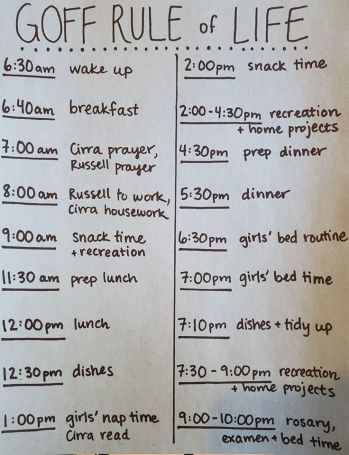 GOFF RULE of LIFE
6:30am wake up
6:40am breakfast
7:00am Cirra prayer,
Russell prayer
8:00am Russell to work,
Cirra housework
9:00am snack time
+ recreation
11:30am prep lunch
12:00pm lunch
12:30pm dishes
1:00pm girls' nap time
Cirra read
2:00pm snack time
2:00-4:30pm recreation
+ home projects
4:30pm prep dinner
5:30pm dinner
6:30pm girls' bed routine
7:00pm girls' bed time
7:10pm dishes + tidy up
7:30-9:00pm recreation
+ home projects
9:00-10:00pm rosary,
examen + bed time